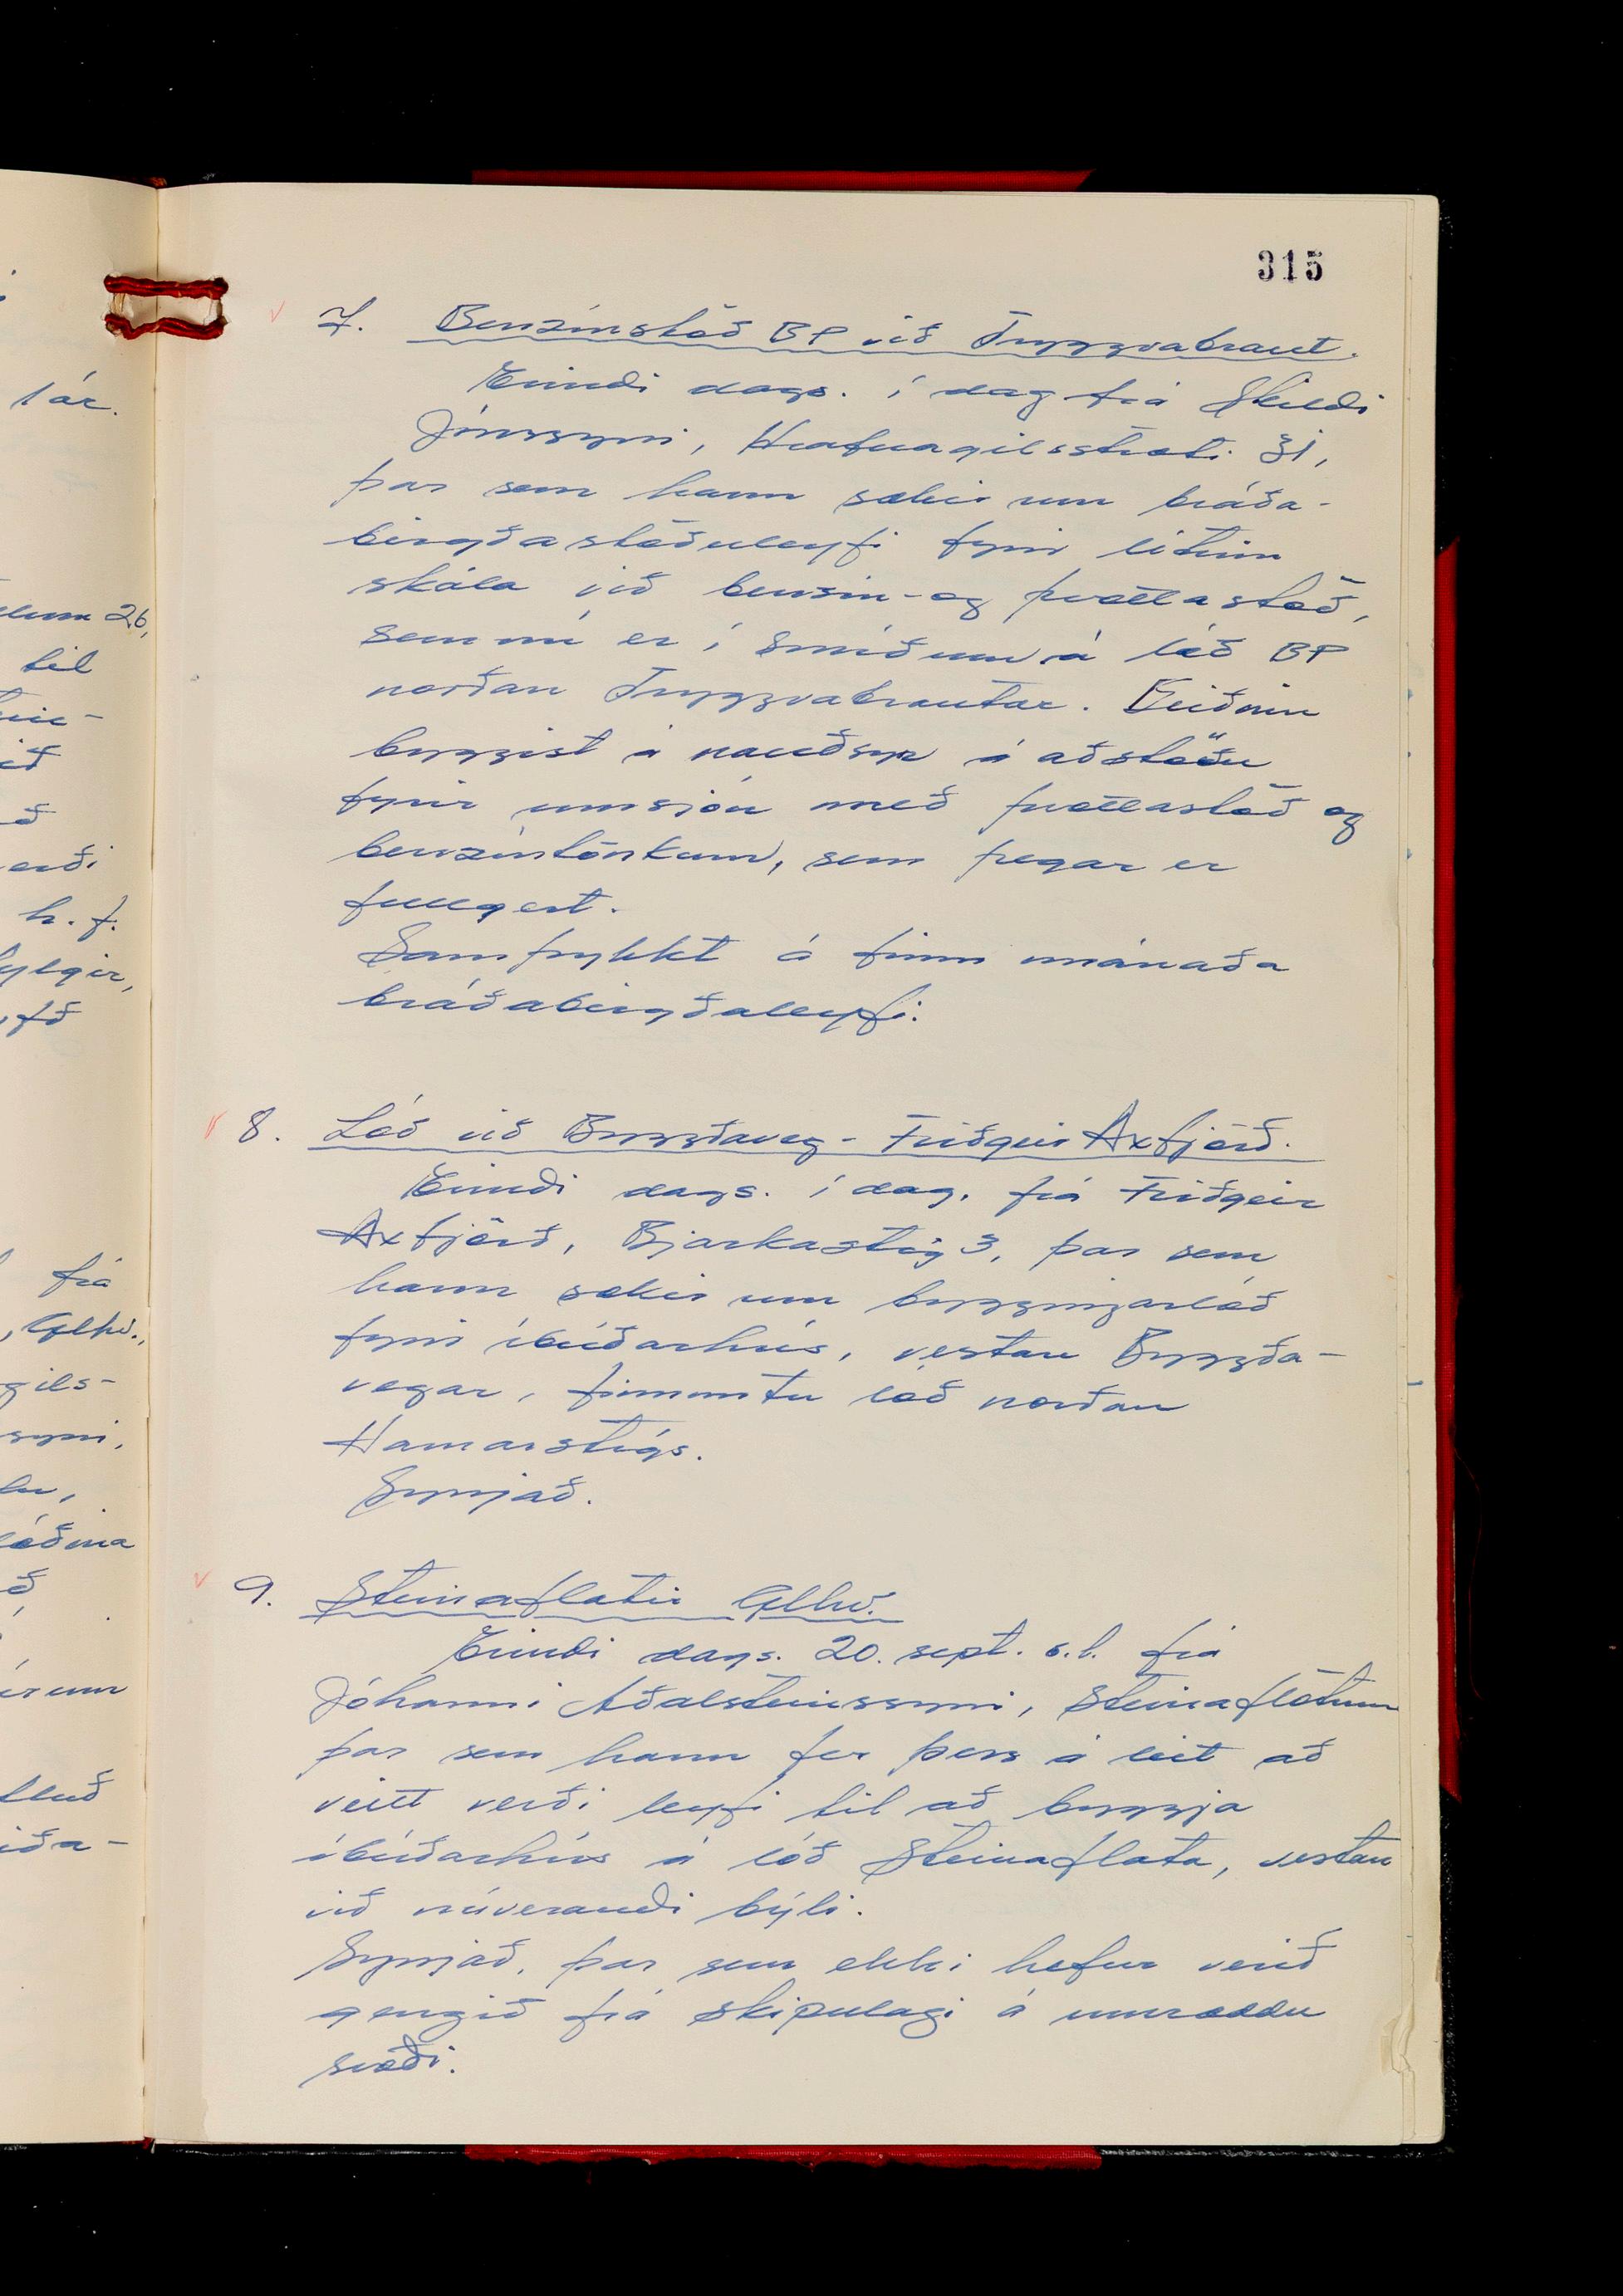 315
7. Benzínstöð BP við Tryggvabraut.
Erindi dags. í dag frá Skildi
Jónssyni, Hrafnagilsstræti 31,
þar sem hann sækir um bráða-
birgðastöðuleyfi fyrir lítinn
skála við benzín- og þvottastöð,
sem nú er í smíðum á lóð BP
norðan Tryggvabrautar. Beiðnin
byggist á nauðsyn á aðstöðu
fyrir umsjón með þvottastöð og
benzíntönkum, sem þegar er
fullgert.
Samþykkt á fimm mánaða
bráðabirgðaleyfi.
8. Lóð við Byggðaveg - Friðgeir Axfjörð.
Erindi dags. í dag, frá Friðgeir
Axfjörð, Bjarkastíg 3, þar sem
hann sækir um byggingarlóð
fyrir íbúðarhús, vestan Byggða-
vegar, fimmtu lóð norðan
Hamarstígs.
Synjað.
9. Steinaflatir Glhv.
Erindi dags. 20. sept. s.l. frá
Jóhanni Aðalsteinssyni, Steinaflötum
þar sem hann fer þess á leit að
veitt verði leyfi til að byggja
íbúðarhús á lóð Steinaflata, vestan
við núverandi býli.
Synjað, þar sem ekki hefur verið
gengið frá skipulagi á umræddu
svæði.
1 ár.
26,
til
h. f.
frá
, Glhv.,
gils-